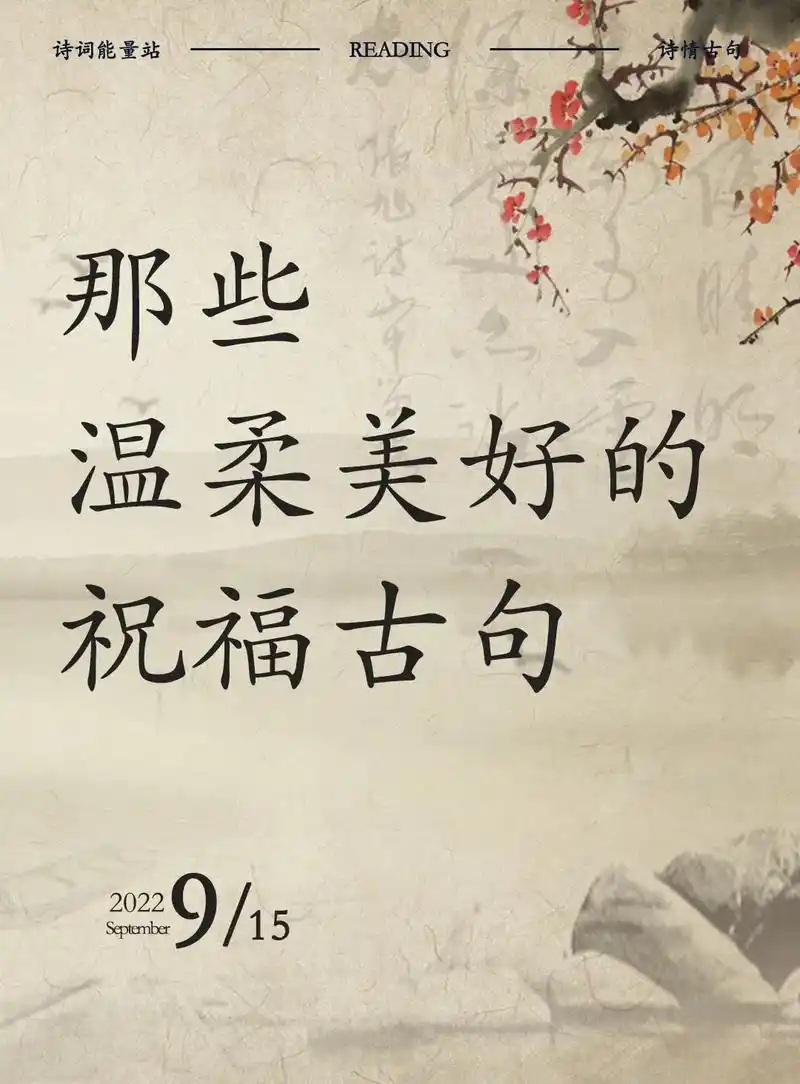 诗词能量站 READING 诗情古句
那些
温柔美好的
祝福古句
2022 9/15
September